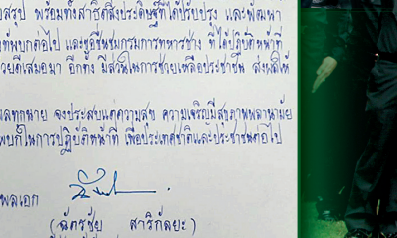 อสรุป พร้อมทั้งสาธิตสิ่งประดิษฐ์ที่ได้ปรับปรุง และพัฒนา
งทัพบกต่อไป และขอชื่นชมกรมการทหารช่าง ที่ได้ปฏิบัติหน้าที่
วยดีเสมอมา อีกทั้ง มีส่วนในการช่วยเหลือประชาชน ส่งผลให้
ลทุกนาย จงประสบแต่ความสุข ความเจริญมีสุขภาพพลานามัย
พบกในการปฏิบัติหน้าที่ เพื่อประเทศชาติและประชาชนต่อไป
พลเอก
(ฉัตรชัย สาริกัลยะ)